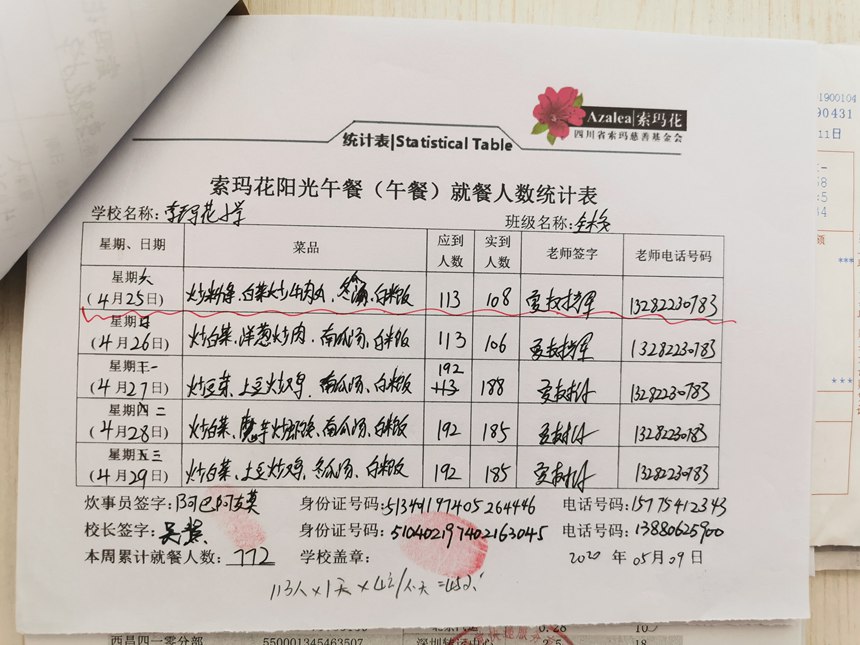 Azalea|索玛花
四川省索玛慈善基金会
统计表|Statistical Table
索玛花阳光午餐（午餐）就餐人数统计表
学校名称：索玛花小学 班级名称：全校
星期、日期 菜品 应到人数 实到人数 老师签字 老师电话号码
星期六（4月25日） 炒粉条、白菜炒牛肉丸、冬瓜汤、白米饭 113 108 13282230783
星期日（4月26日） 炒白菜、洋葱炒肉、南瓜汤、白米饭 113 106 13282230783
星期一（4月27日） 炒豆芽、土豆炖鸡、南瓜汤、白米饭 192 113 188 13282230783
星期二（4月28日） 炒白菜、魔芋炒、南瓜汤、白米饭 192 185 13282230783
星期三（4月29日） 炒白菜、土豆炒鸡、冬瓜汤、白米饭 192 185 13282230783
炊事员签字：阿巴阿支莫 身份证号码：513441197405264446 电话号码：15775412343
校长签字： 身份证号码：510402197402163045 电话号码：13880625900
本周累计就餐人数：772 学校盖章： 2020年05月09日
113人×1天×4元/人天=452
1900104
90431
11日
***
***
西昌四一零分部 550001345463507